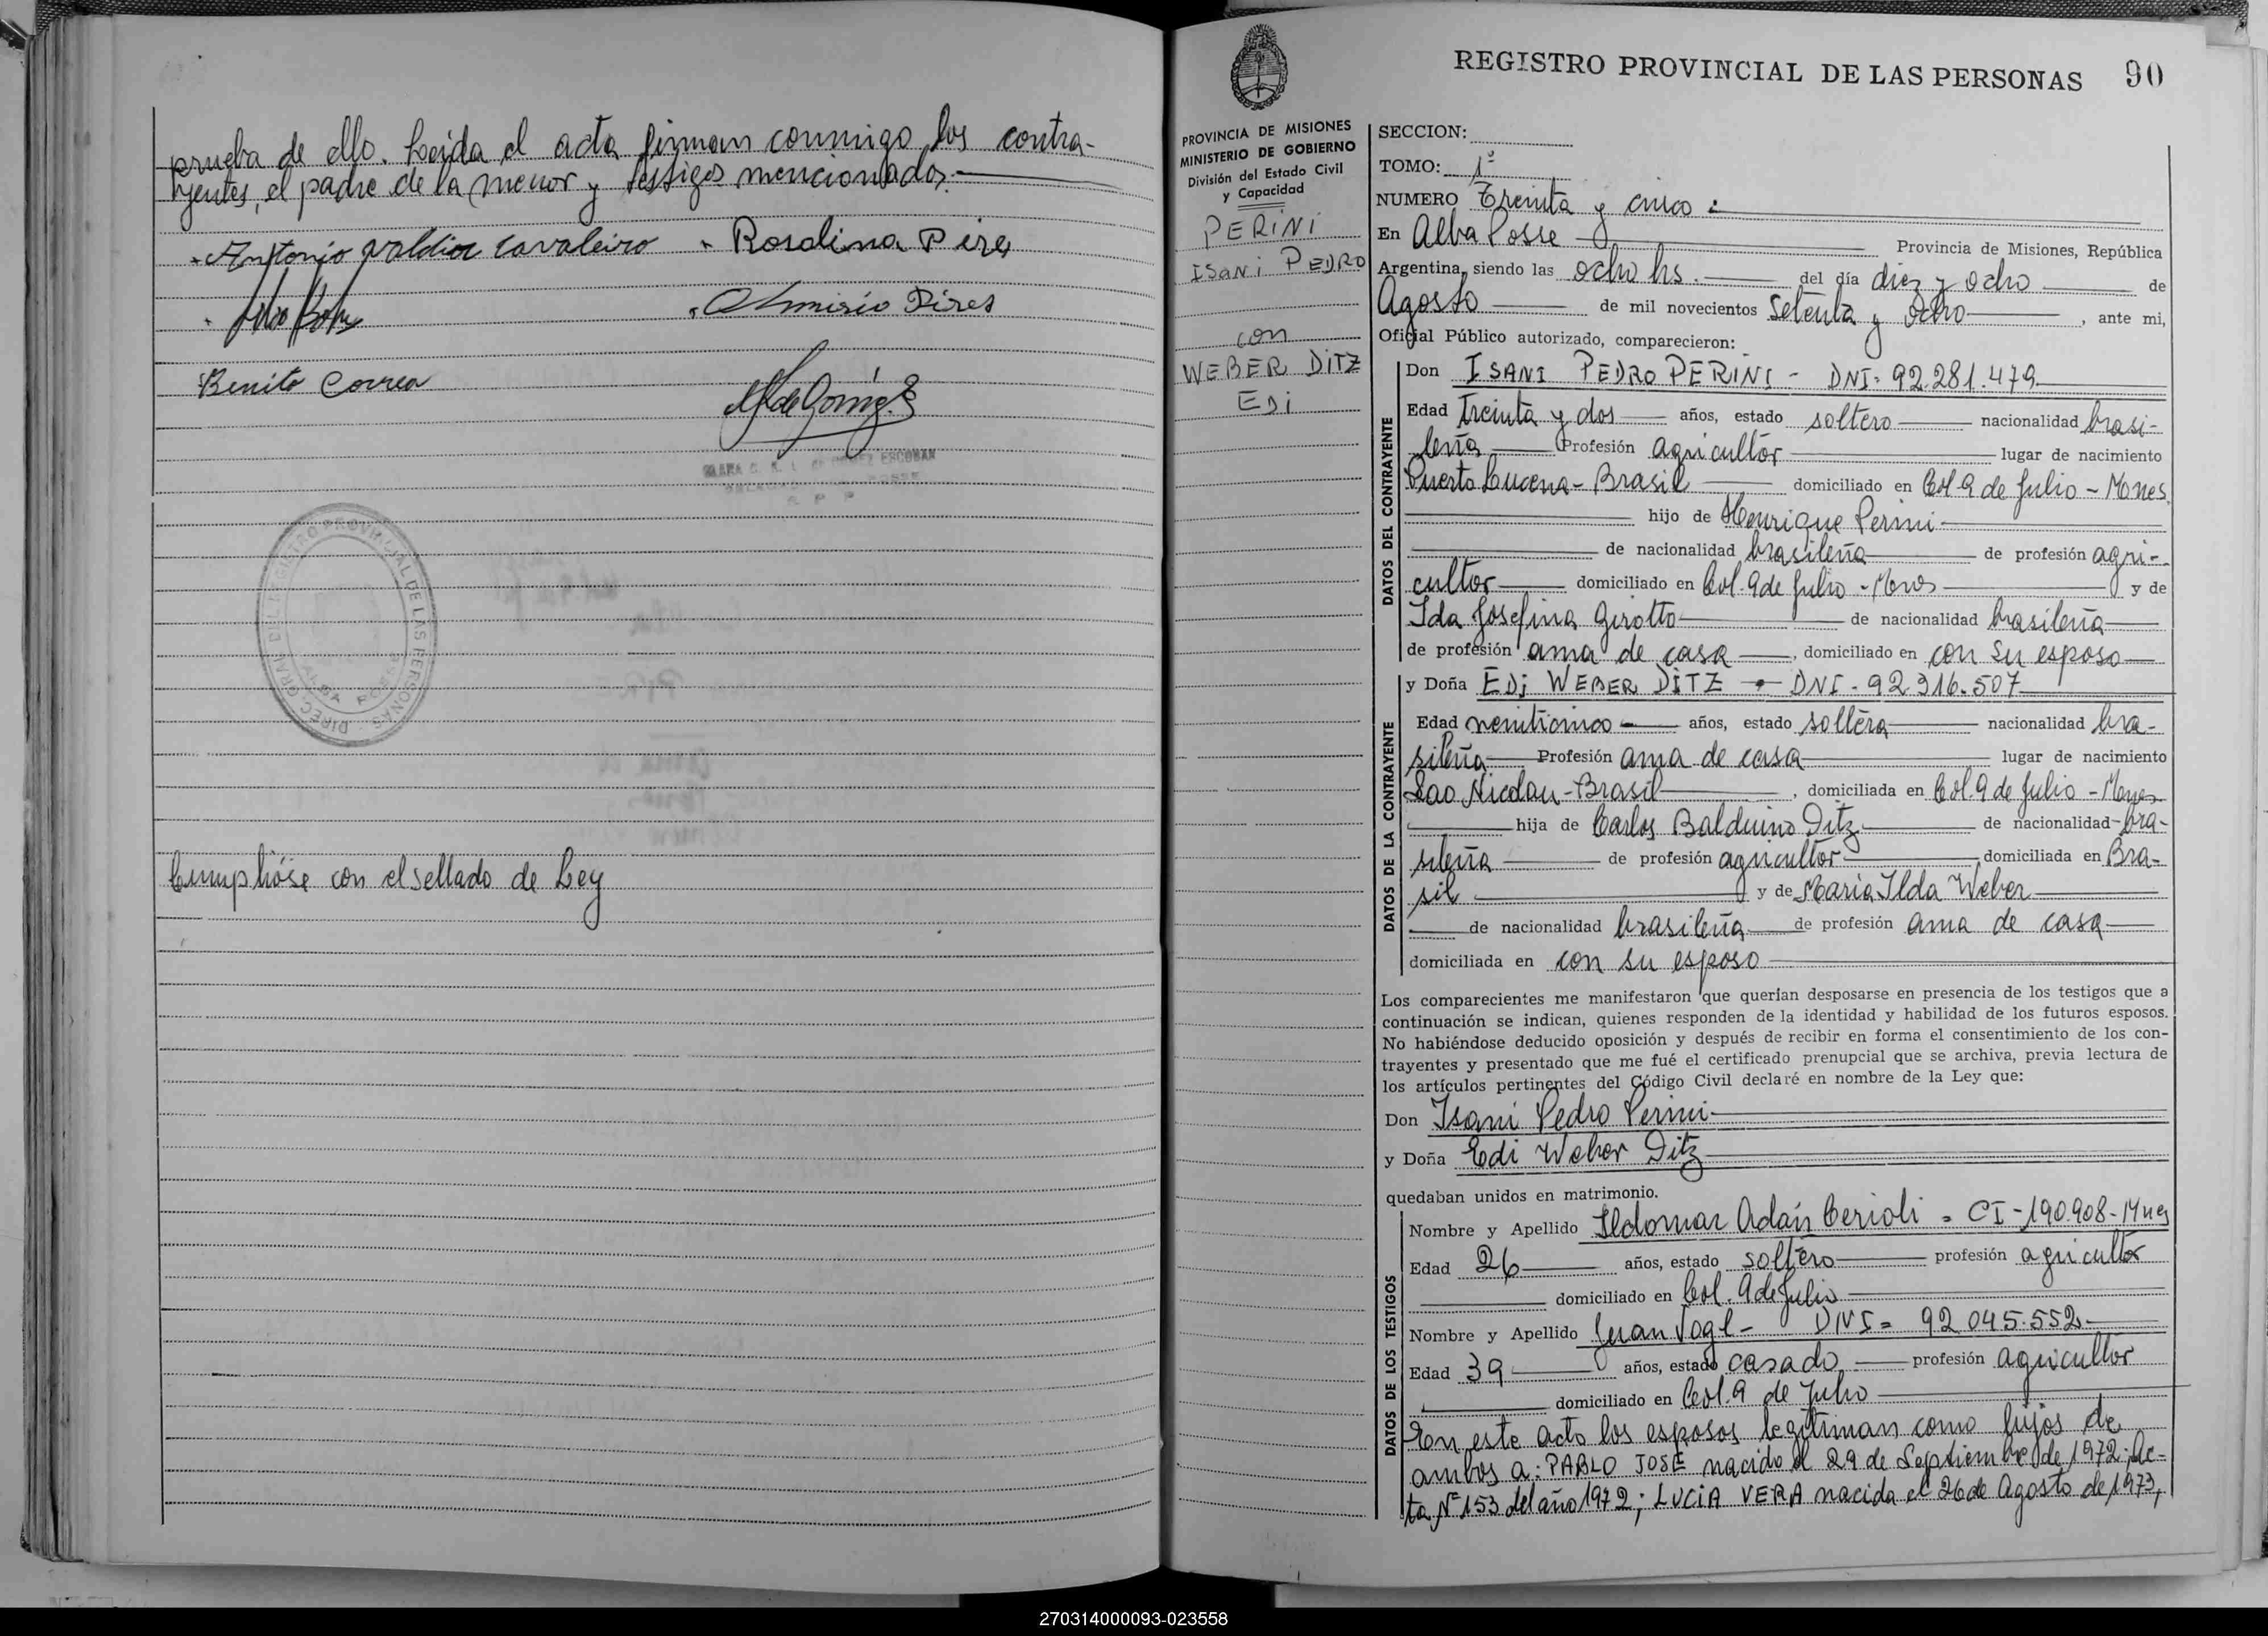 prueba de ello. Leída el acta firman conmigo los contra-
yentes, el padre de la menor y testigos mencionados.
Antonio Valdior Cavaleiro Rosalina Pires
Almirio Pires
Benito Correa
DIREC. GRAL. DEL REGISTRO PROVINCIAL DE LAS PERSONAS
ALBA POSSE
Cumplióse con el sellado de Ley
REGISTRO PROVINCIAL DE LAS PERSONAS 90
PROVINCIA DE MISIONES
MINISTERIO DE GOBIERNO
División del Estado Civil
y Capacidad
PERINI
ISANI PEDRO
con
WEBER DITZ
EDI
SECCION:
TOMO: 1º
NUMERO Treinta y cinco :
En Alba Posse Provincia de Misiones, República
Argentina, siendo las ocho hs. del día diez y ocho de
Agosto de mil novecientos Setenta y Ocho , ante mi,
Oficial Público autorizado, comparecieron:
DATOS DEL CONTRAYENTE
Don ISANI PEDRO PERINI - DNI- 92.281.479
Edad Treinta y dos años, estado soltero nacionalidad brasi-
leña Profesión agricultor lugar de nacimiento
Puerto Lucena - Brasil domiciliado en Col 9 de Julio - Mones
hijo de Henrique Perini
de nacionalidad brasileña de profesión agri-
cultor domiciliado en Col. 9 de Julio - Mnes y de
Ida Josefina Girotto de nacionalidad brasileña
de profesión ama de casa , domiciliado en con su esposo
DATOS DE LA CONTRAYENTE
y Doña EDI WEBER DITZ - DNI - 92.316.507
Edad veinticinco años, estado soltera nacionalidad bra-
sileña Profesión ama de casa lugar de nacimiento
Sao Nicolau - Brasil , domiciliada en Col. 9 de Julio - Mnes
hija de Carlos Balduino Ditz de nacionalidad bra-
sileña de profesión agricultor domiciliada en Bra-
sil y de Maria Ilda Weber
de nacionalidad brasileña de profesión ama de casa
domiciliada en con su esposo
Los comparecientes me manifestaron que querían desposarse en presencia de los testigos que a
continuación se indican, quienes responden de la identidad y habilidad de los futuros esposos.
No habiéndose deducido oposición y después de recibir en forma el consentimiento de los con-
trayentes y presentado que me fué el certificado prenupcial que se archiva, previa lectura de
los artículos pertinentes del Código Civil declaré en nombre de la Ley que:
Don Isani Pedro Perini
y Doña Edi Weber Ditz
quedaban unidos en matrimonio.
DATOS DE LOS TESTIGOS
Nombre y Apellido Ildomar Adán Cerioli - CI - 190.908 - Mnes
Edad 26 años, estado soltero profesión agricultor
domiciliado en Col. 9 de Julio
Nombre y Apellido Juan Vogl - DNI = 92 045.552
Edad 39 años, estado casado profesión agricultor
domiciliado en Col. 9 de Julio
En este acto los esposos legitiman como hijos de
ambos a: PABLO JOSÉ nacido el 29 de Septiembre de 1972; Ac-
ta Nº 153 del año 1972; LUCIA VERA nacida el 26 de Agosto de 1973,
270314000093-023558